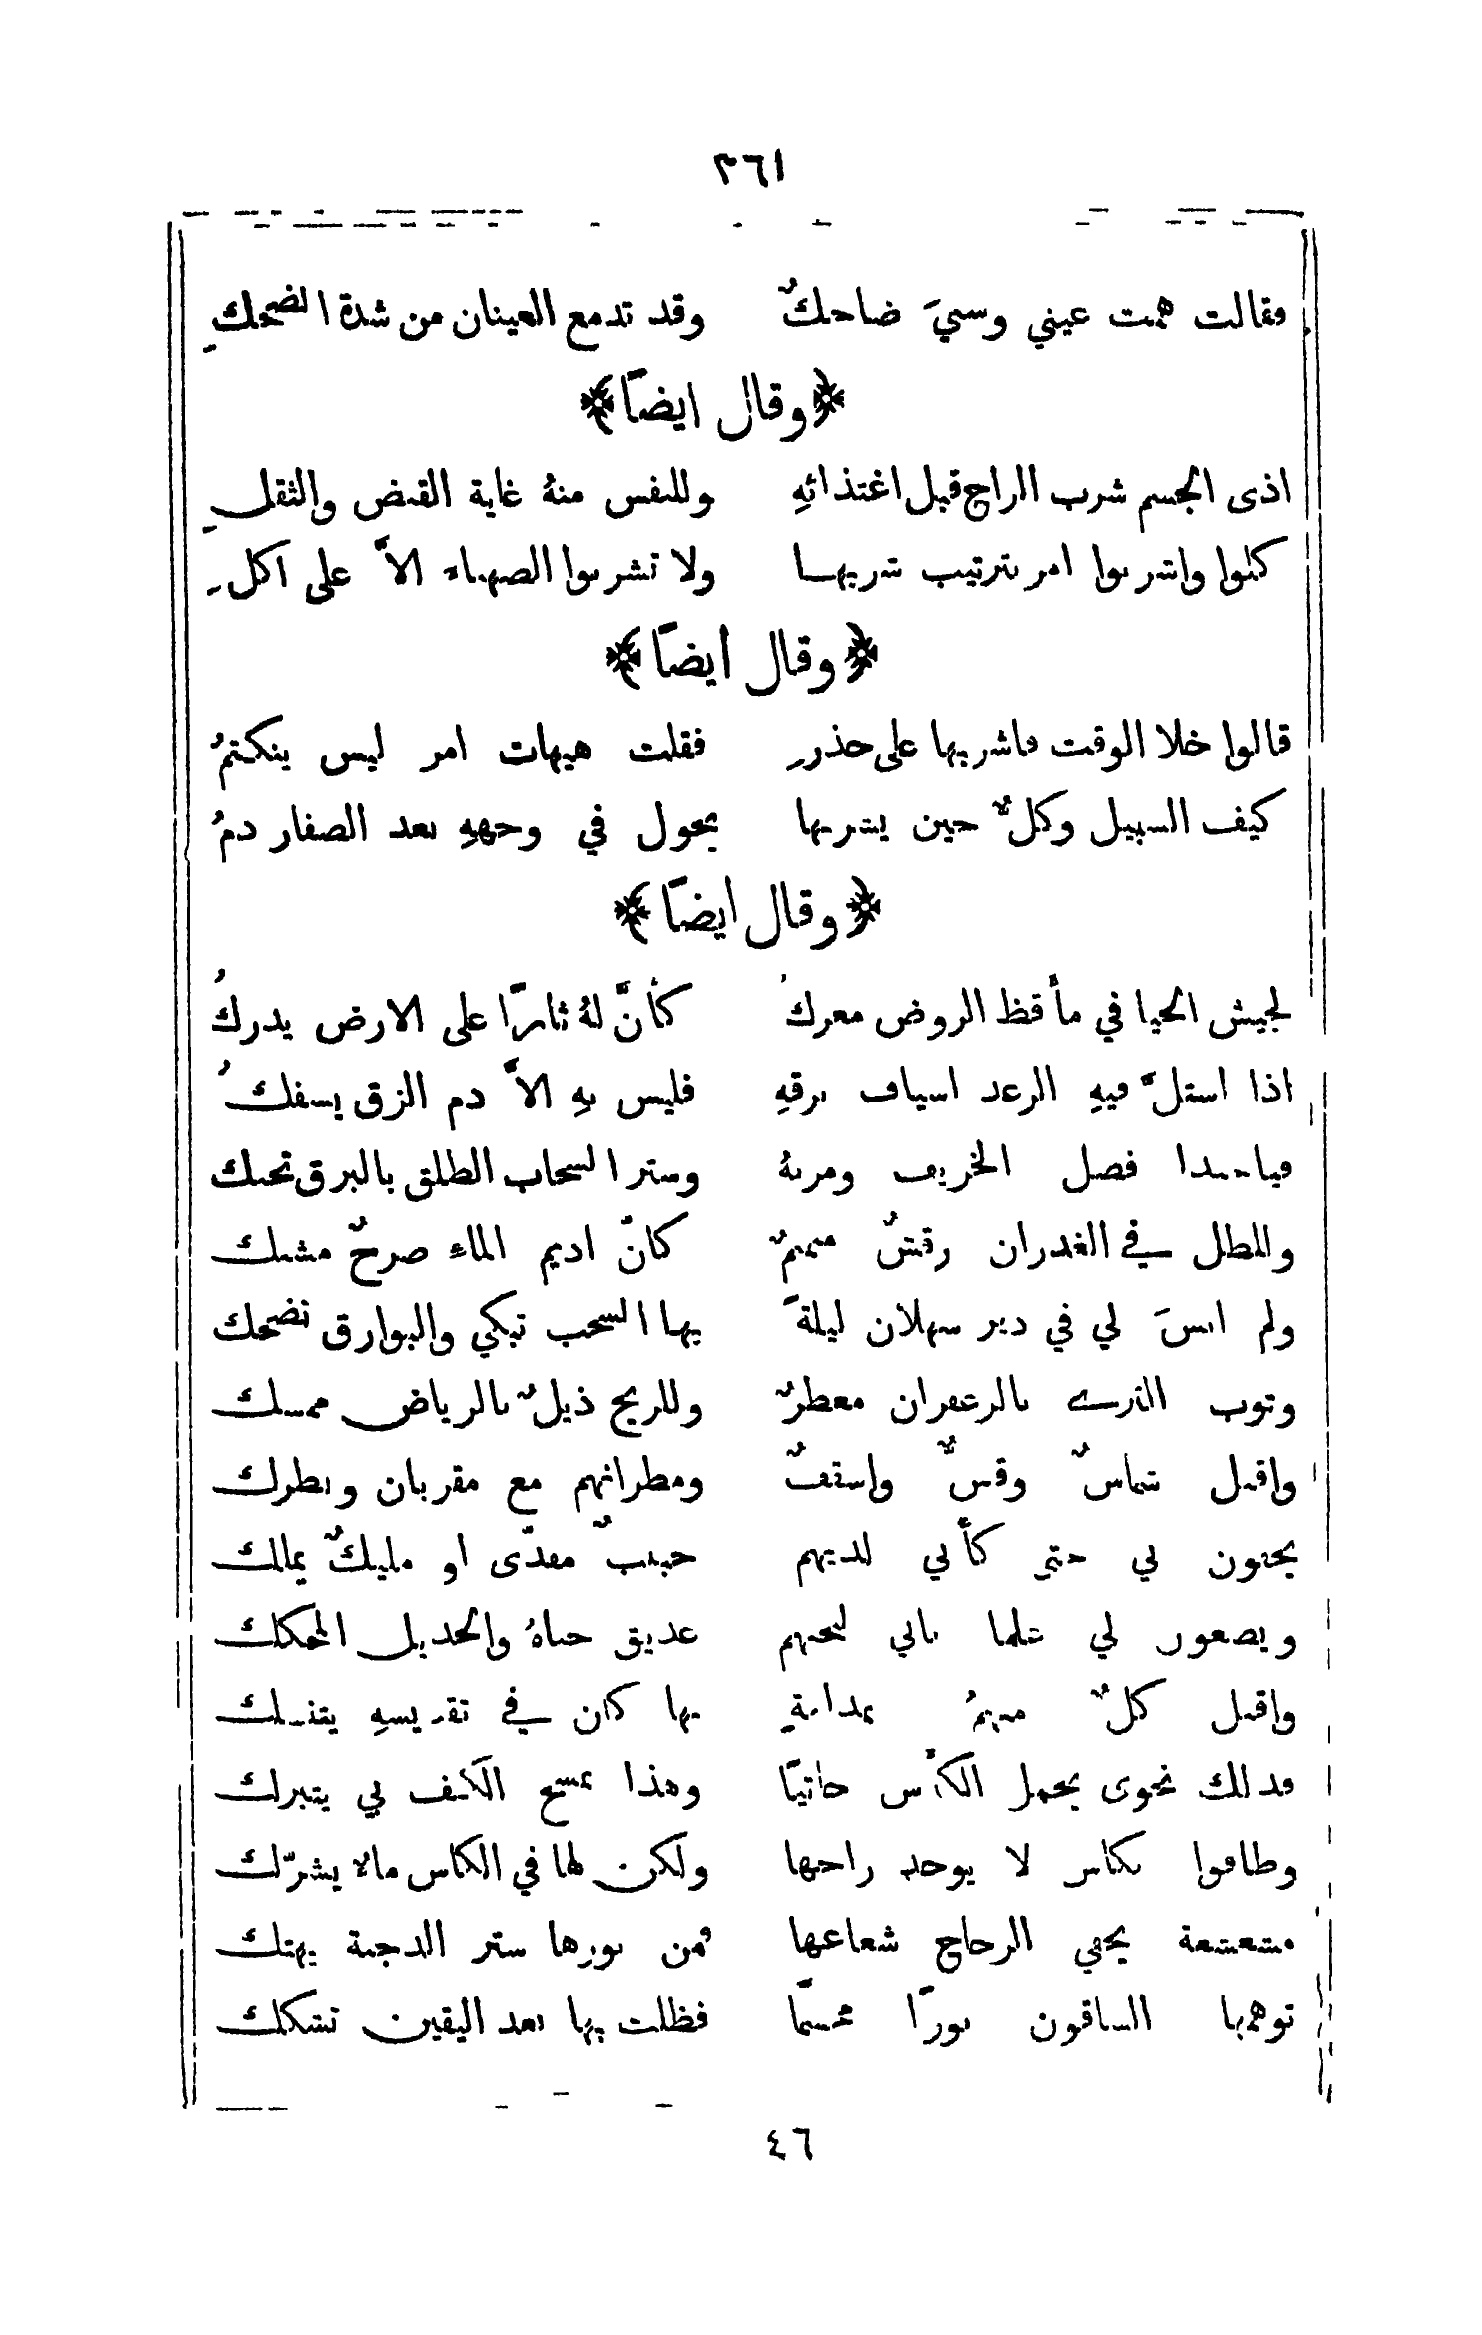 ٣٦١
فقالت همت عيني وسنيَ ضاحكٌ وقد تدمع العينان من شدة الضحكِ
﴿وقال ايضاً﴾
اذى الجسم شرب الراح قبل اغتذائهِ وللنفس منهُ غاية القبض والثقلِ
كلوا واشربوا امر بترتيب شربها ولا تشربوا الصهباء الاَّ على اكلِ
﴿وقال أيضاً﴾
قالوا خلا الوقت فاشربها على حذرِ فقلت هيهات امر ليس ينكتمُ
كيف السبيل وكلٌّ حين يشربها يجول في وجههِ بعد الصفار دمُ
﴿وقال ايضاً﴾
لجيش الحيا في مأقط الروض معركُ كأنَّ لهُ ثارًا على الارض يدركُ
اذا استلَّ فيهِ الرعد اسياف برقهِ فليس بهِ الاَّ دم الزق يسفكُ
فياحبذا فصل الخريف ومزنهُ وستر السحاب الطلق بالبرق تحبك
وللطل في الغدران رقشٌ منمنمٌ كانّ اديم الماء صرحٌ مشبك
ولم انسَ لي في دير سهلان ليلةً بها السحب تبكي والبوارق تضحك
وثوب الثرى بالزعفران معطرٌ وللريح ذيلٌ بالرياض ممسك
واقبل شماسٌ وقسٌّ واسقفٌ ومطرانهم مع مقربان وبطرك
يحثون لي حتى كأني لديهم حبيبٌ مفدّى او مليكٌ يملك
ويصغون لي علما باني لبحثهم عذيق حباهُ والجذيل المحكك
واقبل كلٌّ منهمُ بمدامةٍ بها كان في تقديسهِ يتنسك
فذلك نحوي يحمل الكأس جاثيًا وهذا بمسح الكف بي يتبرك
وطافوا بكاس لا يوحد راحها ولكن لها في الكاس مالا يشرّك
مشعشعة يخفي الزجاج شعاعها فمن نورها ستر الدجنة يهتك
توهمها الساقون نورًا مجسمًا فظلت بها بعد اليقين تشكك
٤٦